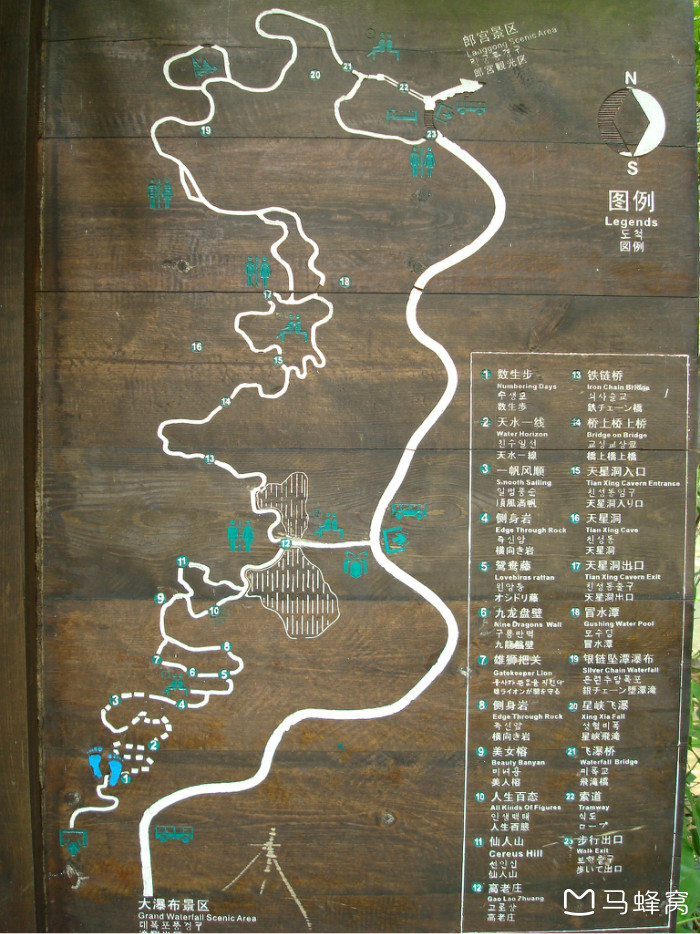 郎宫景区
Langgong Scenic Area
郎宮観光区
N
S
图例
Legends
도척
図例
1 数生步
Numbering Days
数生步
2 天水一线
Water Horizon
천수일선
天水一線
3 一帆风顺
Smooth Sailing
일범풍순
順風満帆
4 侧身岩
Edge Through Rock
측신암
横向き岩
5 鸳鸯藤
Lovebiros rattan
원앙등
オシドリ藤
6 九龙盘壁
Nine Dragons Wall
구룡반벽
九龍盤壁
7 雄狮把关
Gatekeeper Lion
雄ライオンが関を守る
8 侧身岩
Edge Through Rock
측신암
横向き岩
9 美女榕
Beauty Banyan
미녀용
美人榕
10 人生百态
All Kinds Of Figures
인생백태
人生百態
11 仙人山
Cereus Hill
선인산
仙人山
12 高老庄
Gao Lao Zhuang
고로장
高老庄
13 铁链桥
Iron Chain Bridge
쇠사슬교
鉄チェーン橋
14 桥上桥上桥
Bridge on Bridge
교상교상교
橋上橋上橋
15 天星洞入口
Tian Xing Cavern Entrance
천성동입구
天星洞入り口
16 天星洞
Tian Xing Cave
천성동
天星洞
17 天星洞出口
Tian Xing Cavern Exit
천성동출구
天星洞出口
18 冒水潭
Gushing Water Pool
모수담
冒水潭
19 银链坠潭瀑布
Silver Chain Waterfall
은련추담폭포
銀チェーン墜潭滝
20 星峡飞瀑
Xing Xia Fall
성협비폭
星峡飛滝
21 飞瀑桥
Waterfall Bridge
飛滝橋
22 索道
Tramway
ロープ
23 步行出口
Walk Exit
보행출구
歩いて出口
大瀑布景区
Grand Waterfall Scenic Area
대폭포풍경구
21
20
22
23
19
18
17
16
15
14
13
12
11
9
10
8
7
6
5
4
3
2
1
马蜂窝